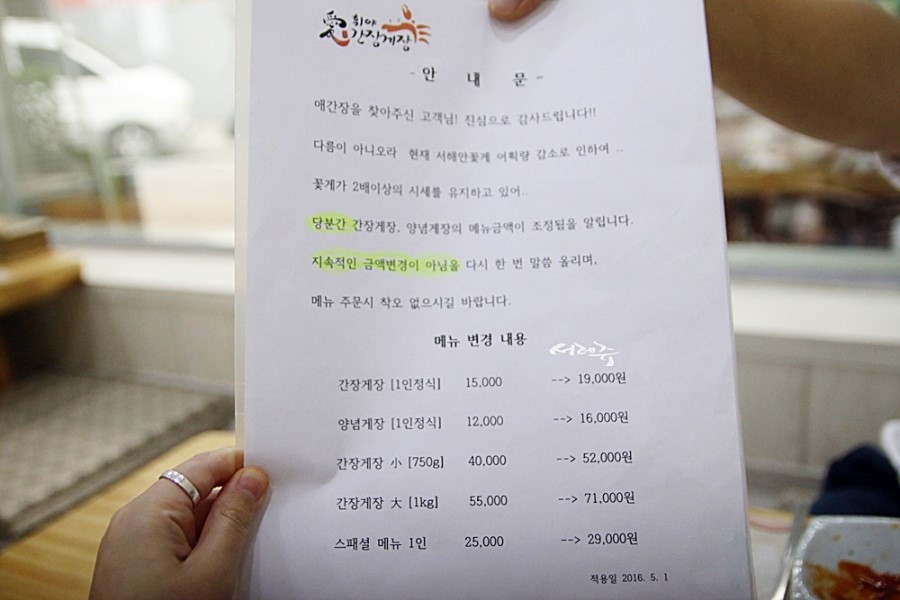 愛 취야
간장게장
- 안 내 문 -
애간장을 찾아주신 고객님! 진심으로 감사드립니다!!
다름이 아니오라 현재 서해안꽃게 어획량 감소로 인하여 ..
꽃게가 2배이상의 시세를 유지하고 있어..
당분간 간장게장, 양념게장의 메뉴금액이 조정됨을 알립니다.
지속적인 금액변경이 아님을 다시 한 번 말씀 올리며,
메뉴 주문시 착오 없으시길 바랍니다.
메뉴 변경 내용
간장게장 [1인정식] 15,000 --> 19,000원
양념게장 [1인정식] 12,000 --> 16,000원
간장게장 小 [750g] 40,000 --> 52,000원
간장게장 大 [1kg] 55,000 --> 71,000원
스패셜 메뉴 1인 25,000 --> 29,000원
적용일 2016. 5. 1